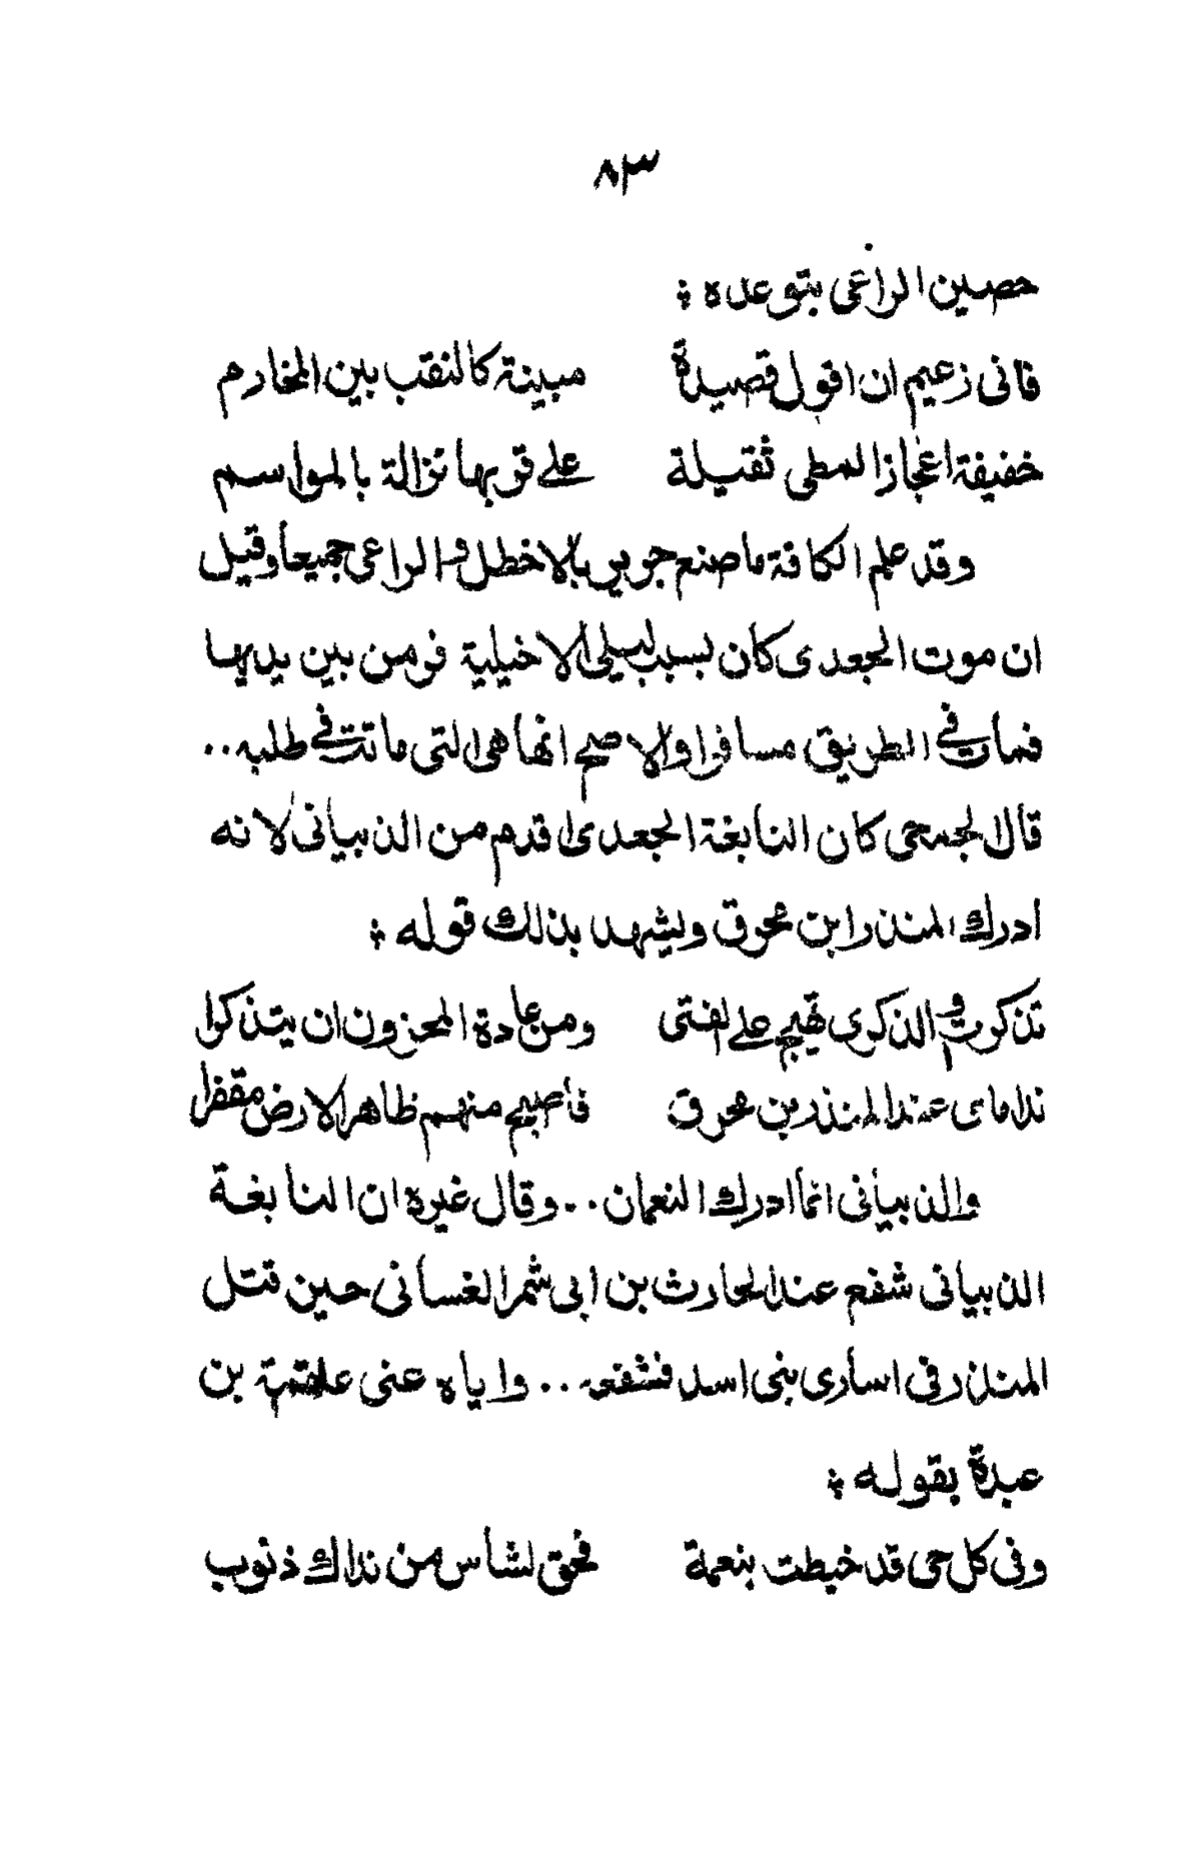 ٨٣
حصين الراعى يتوعده :
فانى زعيم ان اقول قصيدة مبينة كالنقب بين المخارم
خفيفة اعجاز المطى ثقيلة على قربها نزالة بالمواسم
وقد علم الكافة ما صنع جرير بالاخطل والراعى جميعا وقيل
ان موت الجعدى كان بسبب ليلى الاخيلية فر من بين يديها
فمات فى الطريق مسافرا والاصح انها هى التى ماتت فى طلبه . .
قال الجمحى كان النابغة الجعدى اقدم من الذبيانى لانه
ادرك المنذر ابن محرق ويشهد بذلك قوله :
تذكرت والذكرى تهيج على الفتى ومن عادة المحزون ان يتذكرا
نداماى عند المنذر بن محرق فأصبح منهم ظاهر الارض مقفرا
والذبيانى انما ادرك النعمان . . وقال غيره ان النابغة
الذبيانى شفع عند الحارث بن ابى شمر الغسانى حين قتل
المنذر فى اسارى بنى اسد فشفعه . . واياه عنى علقمة بن
عبدة بقوله :
وفى كل حى قد خبطت بنعمة فحق لشأس من نداك ذنوب